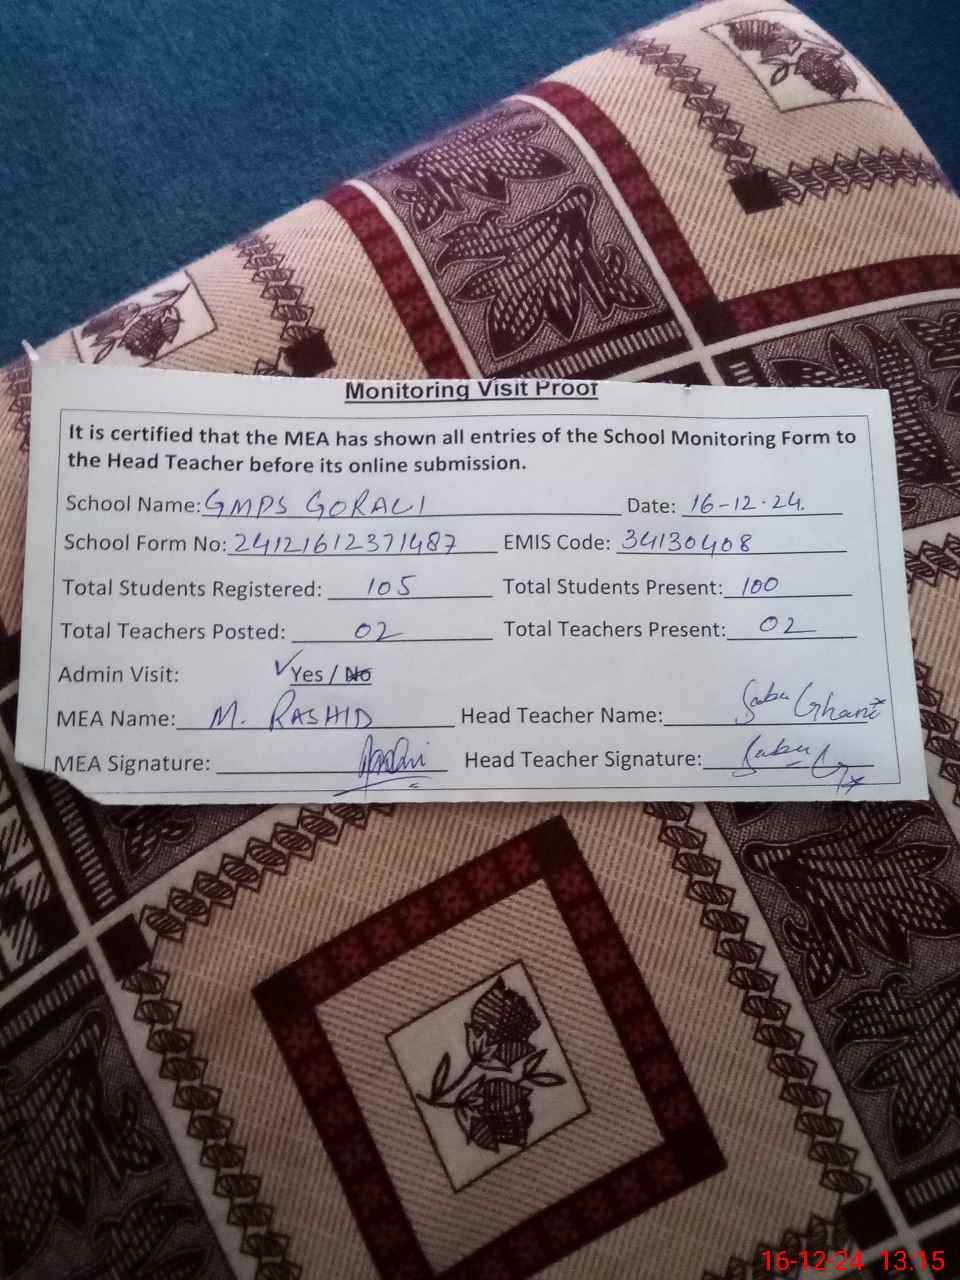 Monitoring Visit Proof
It is certified that the MEA has shown all entries of the School Monitoring Form to
the Head Teacher before its online submission.
School Name: GMPS GORALI Date: 16-12-24.
School Form No: 24121612371487 EMIS Code: 34130408
Total Students Registered: 105 Total Students Present: 100
Total Teachers Posted: 02 Total Teachers Present: 02
Admin Visit: ✓Yes / No
MEA Name: M. RASHID Head Teacher Name: Ghani
MEA Signature: Head Teacher Signature:
16-12-24 13.15